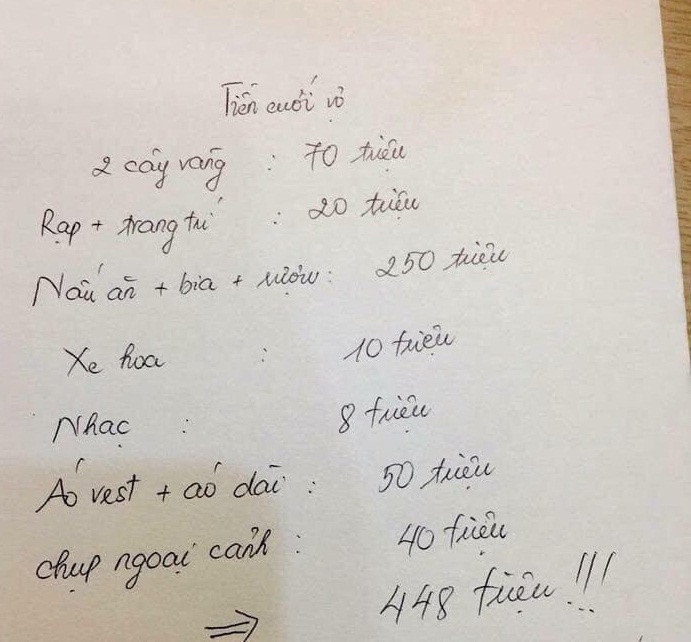 Tiền cưới vợ
2 cây vàng : 70 triệu
Rạp + trang trí : 20 triệu
Nấu ăn + bia + rượu : 250 triệu
Xe hoa : 10 triệu
Nhạc : 8 triệu
Áo vest + áo dài : 50 triệu
chụp ngoại cảnh : 40 triệu
⇒ 448 triệu !!!